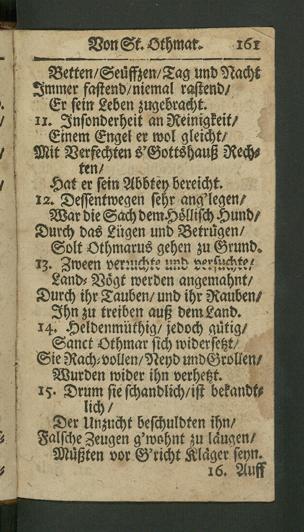 Von St. Othmar. 161
Betten/Seüffzen/Tag und Nacht
Immer fastend/niemal rastend/
Er sein Leben zugebracht.
11. Insonderheit an Reinigkeit/
Einem Engel er wol gleicht/
Mit Verfechten s'Gottshauß Rech-
ten/
Hat er sein Abbtey bereicht.
12. Dessentwegen sehr ang'legen/
War die Sach dem Höllisch Hund/
Durch das Lügen und Betrügen/
Solt Othmarus gehen zu Grund.
13. Zween verruchte und versuchte/
Land-Vögt werden angemahnt/
Durch ihr Tauben/und ihr Rauben/
Ihn zu treiben auß dem Land.
14. Heldenmüthig/ jedoch gütig/
Sanct Othmar sich widersetzt/
Sie Rach-vollen/Neyd und Grollen/
Wurden wider ihn verhetzt.
15. Drum sie schandlich/ist bekandt-
lich/
Der Unzucht beschuldten ihn/
Falsche Zeugen g'wohnt zu läugen/
Müßten vor G'richt Kläger seyn.
16. Auff